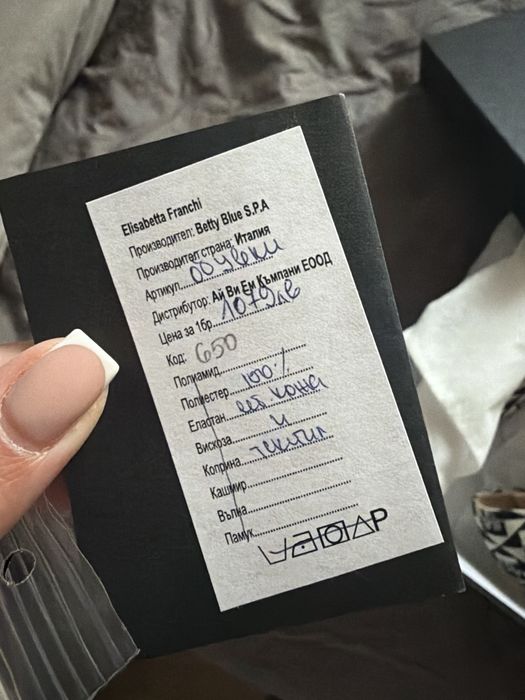 Elisabetta Franchi
Производител: Betty Blue S.P.A
Производител страна: Италия
Артикул обувки
Дистрибутор: Ай Ви Ем Къмпани ЕООД
Цена за 1бр. 1079лв
Код: 650
Полиамид
Полиестер 100%
Еластан ест кожа
Вискоза и
Коприна текстил
Кашмир
Вълна
Памук
P